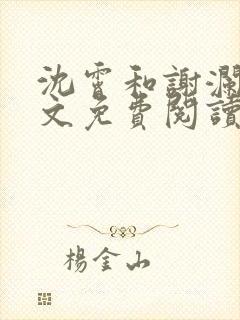 沈霄和謝瀾
文免費閱讀
楊金山